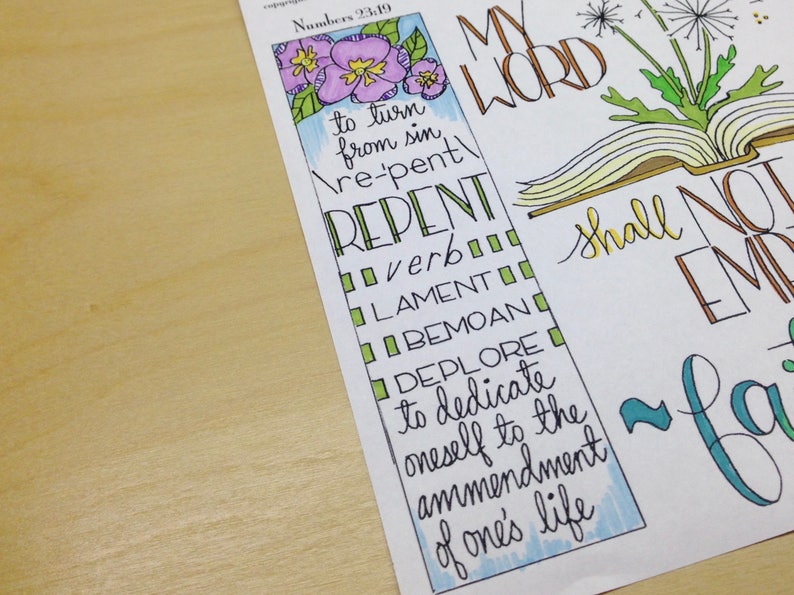 copyright
Numbers 23:19
to turn
from sin
\re-'pent\
REPENT
verb
LAMENT
BEMOAN
DEPLORE
to dedicate
oneself to the
ammendment
of one's life
MY
WORD
shall NOT
~